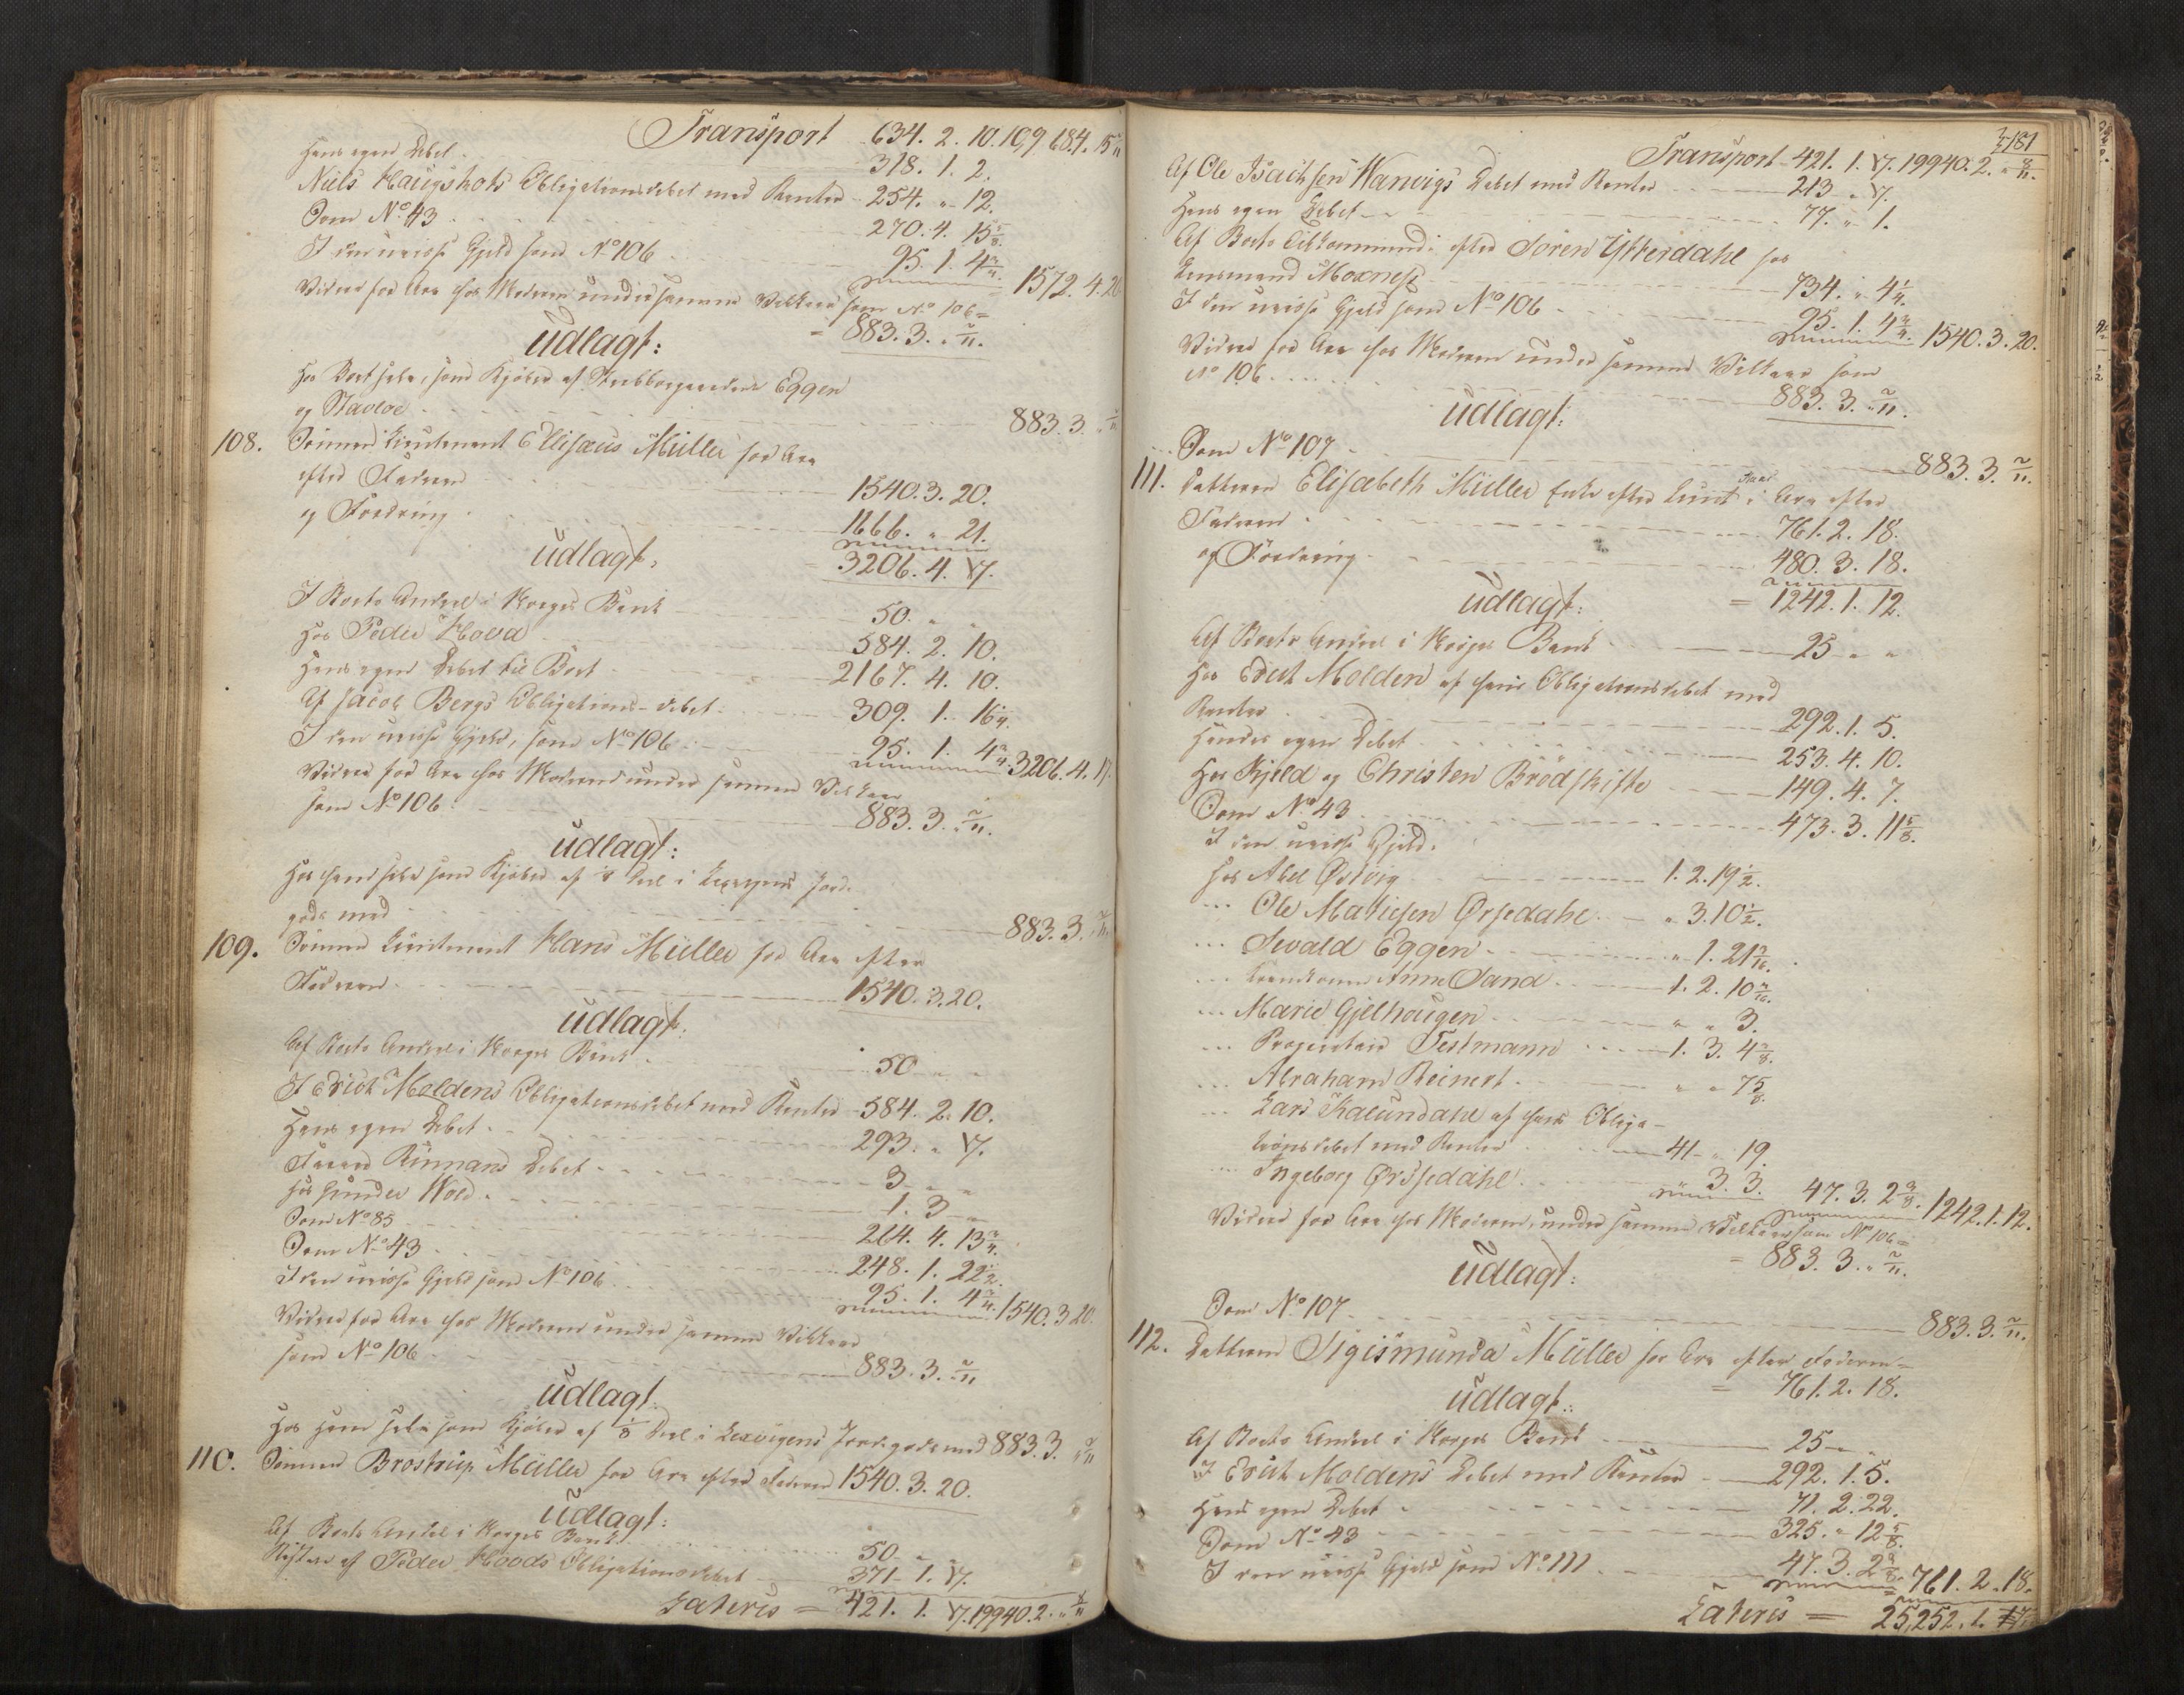 Transport 634. 2. 10. 10,9 684. 15/11
Hans egen Debet 318. 1. 2.
Niels Haugshots Obligationsdebet med Renter 254. " 12.
Som No 43 270. 4. 15 5/8.
I den uvisse Gjeld som No 106 95. 1. 4 3/4. 1572. 4. 20
Videre for Arv hos Moderen under samme Vilkaar som No 106 = 883. 3. " 2/11.
udlagt:
Hos Boet selv, som Kjøber af Stubborgaardene Eggen
og Stavloe 883. 3.
108. Sønnen Lieutenant Ellisæus Müller for Arv
efter Faderen 1540. 3. 20.
og Fordring 1666. " 21.
3206. 4. 17.
udlagt:
I Boets Andeel i Norges Bank 50. " "
Hos Peder Hovd 584. 2. 10.
Hans egen Debet til Boet 2167. 4. 10.
Af Jacob Bergs Obligations-debet 309. 1. 16 1/4.
I den uvisse Gjeld, som No 106 95. 1. 4 3/4. 3206. 4. 17.
Videre for Arv hos Moderen under samme Vilkaar
som No 106 883. 3. " 2/11.
udlagt:
Hos ham selv som Kjøber af 1/8 Deel i Lexvigens Jorde-
gods med 883. 3. 2/11
109. Sønnen Lieutenant Hans Müller for Arv efter
Faderen 1540. 3. 20.
udlagt:
Af Boets Andeel i Norges Bank 50 " "
I Erich Moldens Obligationsdebet med Renter 584. 2. 10.
Hans egen Debet 293. " 17.
Rinnans Debet 3 " "
Hos Gunder Wold 1. 3 "
Som No 85 264. 4. 13 3/4.
Som No 43 248. 1. 22 1/2.
I den uvisse Gjeld som No 106 95. 1. 4 3/4. 1540. 3 20.
Videre for Arv hos Moderen under samme Vilkaar
som No 106 883. 3. " 2/11
udlagt
Hos ham selv som Kjøber af 1/8 Deel i Lexvigens Jordegods med 883. 3. " 2/11
110. Sønnen Brostrup Müller for Arv efter Faderen 1540. 3. 20.
udlagt:
Af Boets Andeel i Norges Bank 50 " "
Resten af Peder Hovds Obligationsdebet 371. 1. 17.
Lateris = 421. 1. 17. 19940. 2. " 8/11
181
Transport 421. 1. 17. 19940. 2. " 8/11.
Af Ole Isachsen Wanvigs Debet med Renter 213 " 17.
Hans egen Debet 77. " 1.
Af Boets efter Søren Ytterdahl hos
Lensmand Moxness 734. " 4 1/4.
I den uvisse Gjeld som No 106 95. 1. 4 3/4. 1540. 3. 20.
Videre for Arv hos Moderen under samme Vilkaar som
No 106 883. 3. " 2/11.
udlagt:
Som No 107 883. 3. 2/11.
111. Datteren Elisabeth Müller Enke efter Lund for Arv efter
Faderen 761. 2. 18.
og Fordring 480. 3. 18.
= 1242. 1. 12.
udlagt:
Af Boets Andeel i Norges Bank 25 " "
Hos Erich Molden af hans Obligationsdebet med
Renter 292. 1. 5.
Hendes egen Debet 253. 4. 10.
Hos Kjeld og Christen Brødskifte 149. 4. 7.
Som No 43 473. 3. 11 5/8.
I den uvisse Gjeld.
Hos Abel Østvig 1. 2. 19 1/2.
... Ole Mathiesen Ørsedahl " 3. 10 1/2.
... Sevald Eggen " 1. 21 9/16.
... Anne Sand 1. 2. 10 7/16.
... Marie Gjelhougen " " 3.
... Procurator Testmann 1. 3. 4 3/8.
... Abraham Reinert " " 7 5/8.
... Lars Kalundahl af hans Obliga-
tions debet med Renter 41 " 19.
... Ingeborg Ørssedahl 3. 3. 47. 3. 2 3/8. 1242. 1. 12.
Videre for Arv hos Moderen, under samme Vilkaar som No 106 =
= 883 3. " 2/11.
udlagt:
Som No 107 883. 3. 2/11.
112. Datteren Sigismunda Müller for Arv efter Faderen
= 761. 2. 18.
udlagt:
Af Boets Andeel i Norges Bank 25 "
I Erich Moldens Debet med Renter 292. 1. 5.
Hendes egen Debet 71. 2. 22.
Som No 43 325. " 12 5/8.
I den uvisse Gjeld som No 111 47. 3. 2 3/8. 761. 2. 18.
Lateris = 25,252. 1.